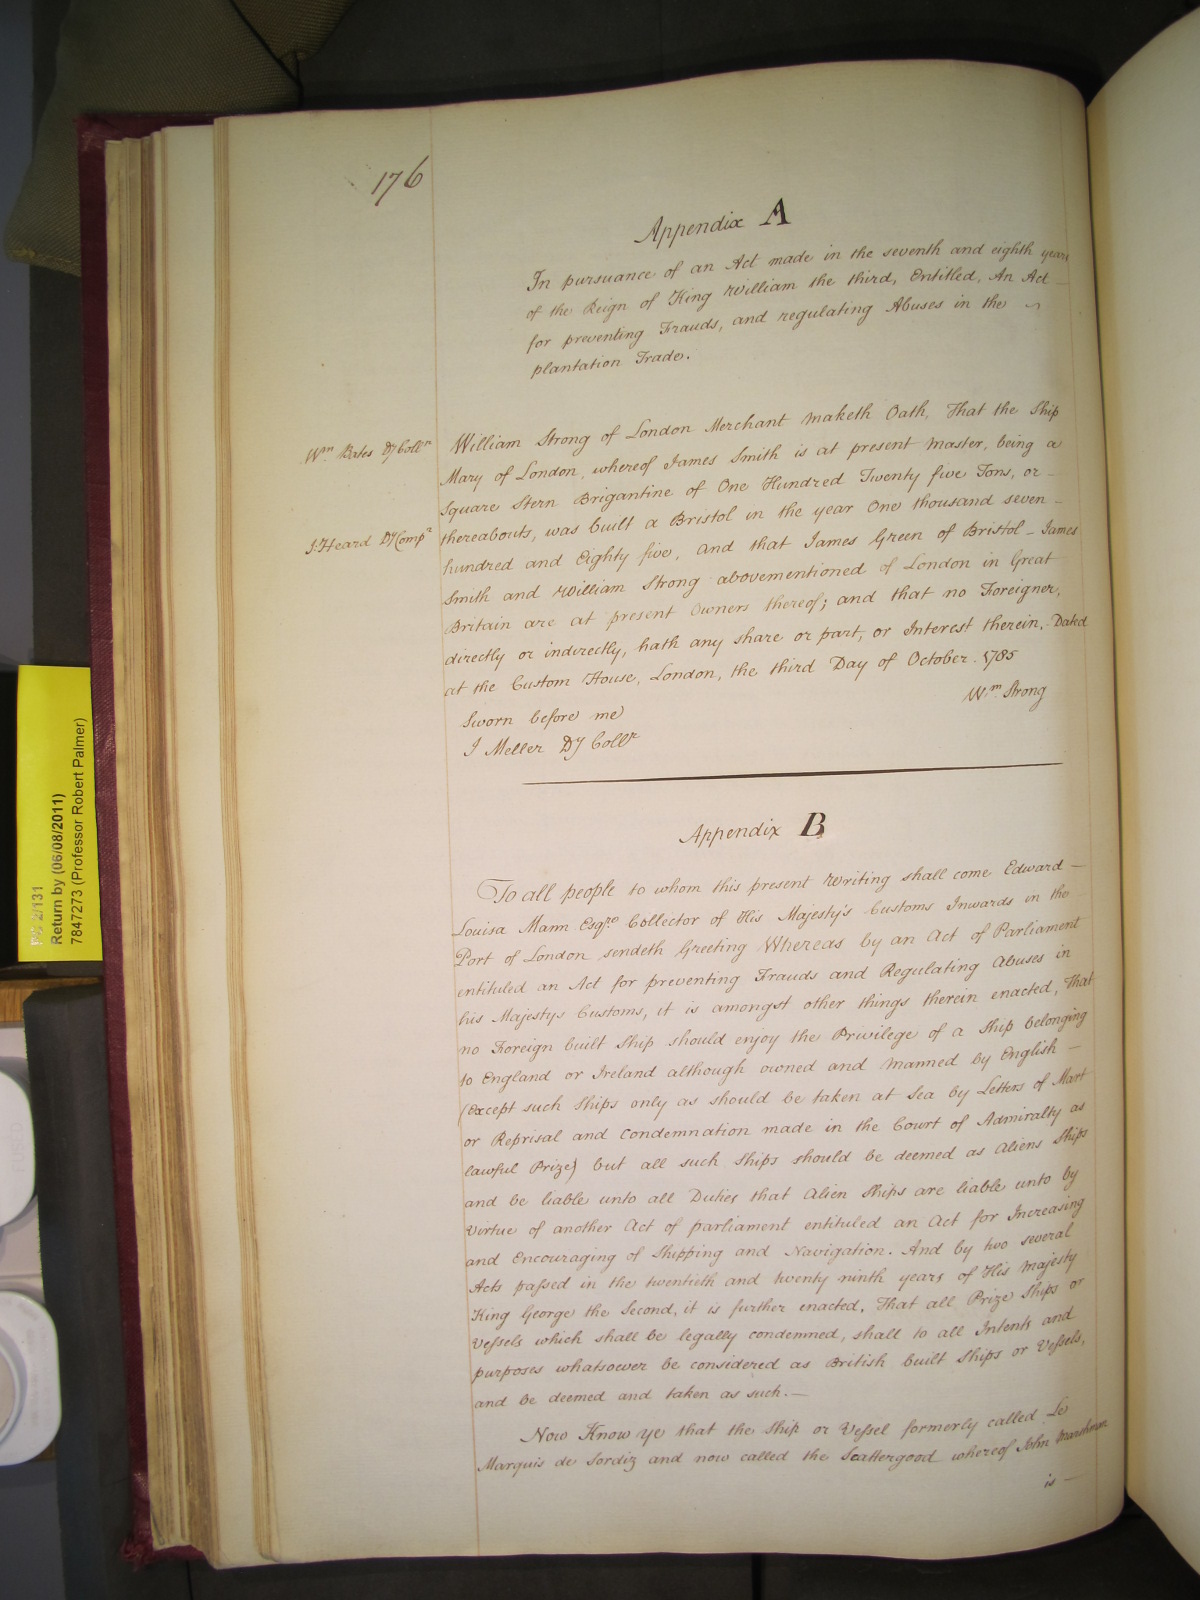 176
Appendix A
In pursuance of an Act made in the seventh and eighth years
of the Reign of King William the third, Entitled, An Act
for preventing Frauds, and regulating Abuses in the
plantation Trade.
Wm Bates Dy Collr
J Heard Dy Compr
William Strong of London Merchant maketh Oath, That the Ship
Mary of London, whereof James Smith is at present Master, being a
Square Stern Brigantine of One Hundred Twenty five Tons, or
thereabouts, was built a Bristol in the year One thousand seven
hundred and Eighty five, and that James Green of Bristol - James
Smith and William Strong abovementioned of London in Great
Britain are at present Owners thereof; and that no Foreigner,
directly or indirectly, hath any share or part, or Interest therein, Dated
at the Custom House, London, the third Day of October 1785
Wm Strong
Sworn before me
J Meller Dy Collr
Appendix B
To all people to whom this present Writing shall come Edward
Louisa Mann Esqre Collector of His Majesty's Customs Inwards in the
Port of London sendeth Greeting Whereas by an Act of Parliament
entituled an Act for preventing Frauds and Regulating Abuses in
his Majestys Customs, it is amongst other things therein enacted, That
no Foreign built Ship should enjoy the Privilege of a Ship belonging
to England or Ireland although owned and manned by English
(Except such Ships only as should be taken at Sea by Letters of Mart
or Reprisal and Condemnation made in the Court of Admiralty as
lawful Prize) but all such Ships should be deemed as Aliens Ships
and be liable unto all Duties that Alien Ships are liable unto by
Virtue of another Act of parliament entituled an Act for Increasing
and Encouraging of Shipping and Navigation. And by two several
Acts passed in the twentieth and twenty ninth years of His Majesty
King George the Second, it is further enacted, That all Prize Ships or
Vessels which shall be legally condemned, shall to all Intents and
purposes whatsoever be considered as British built Ships or Vessels,
and be deemed and taken as such.
Now Know ye that the Ship or Vessel formerly called Le
Marquis de Sordiz and now called the Scattergood whereof John Marshman
is
2/131
Return by (06/08/2011)
7847273 (Professor Robert Palmer)